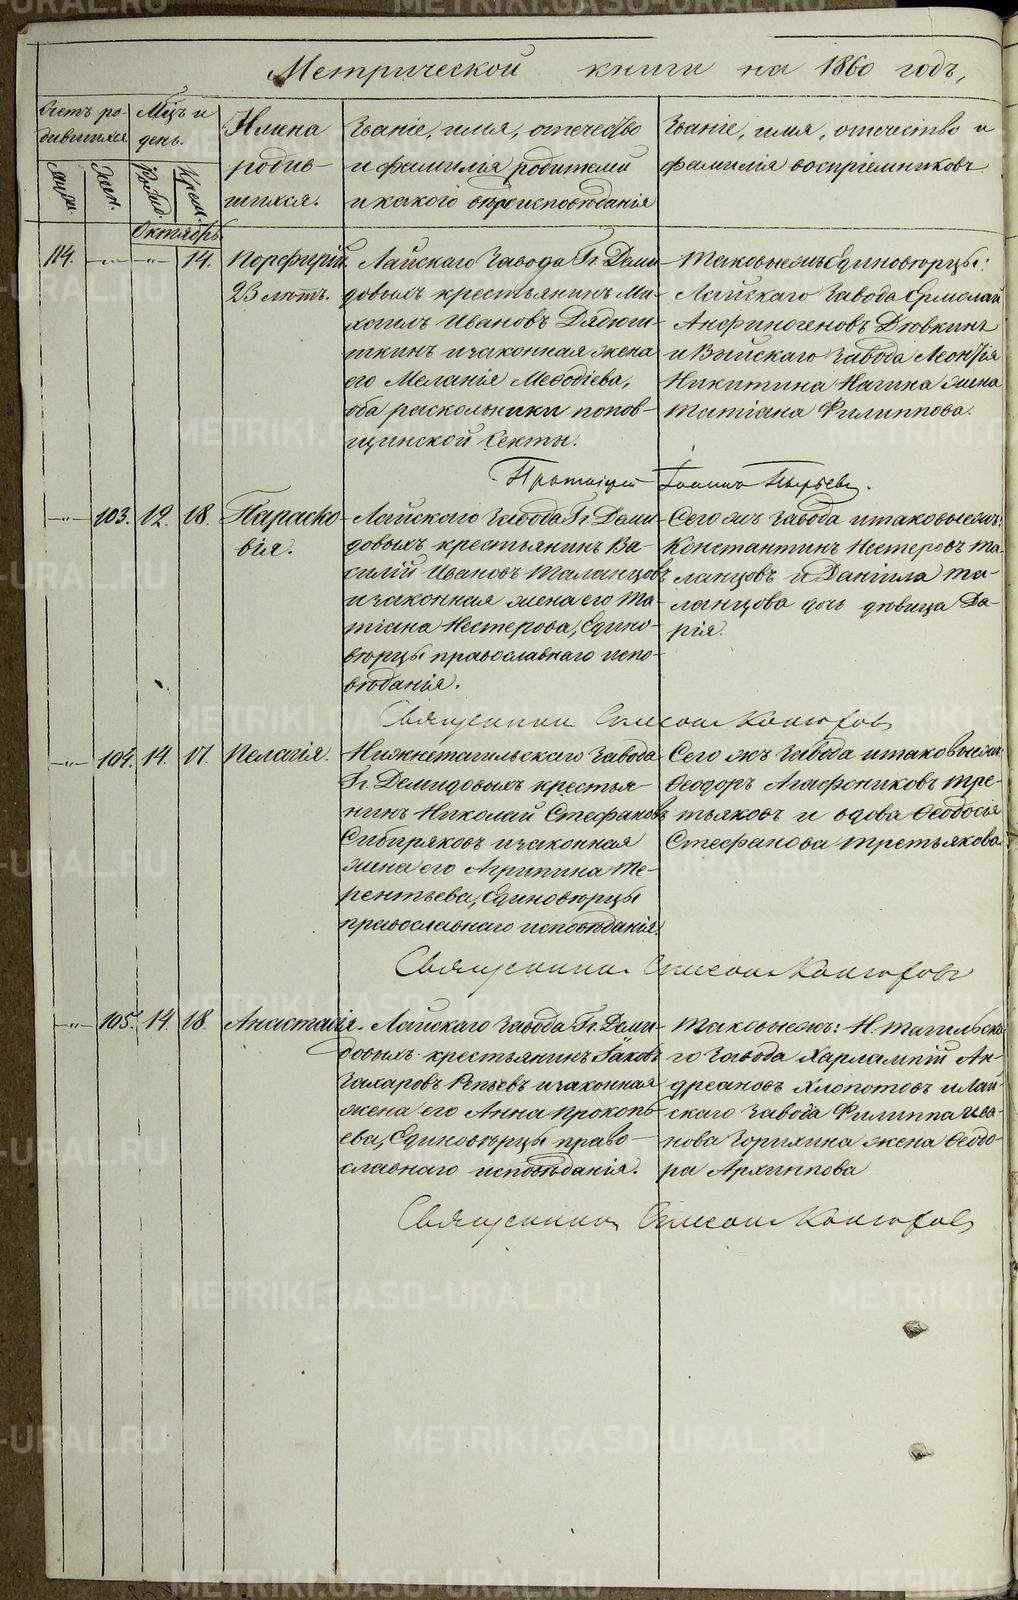 Метрической книги на 1860 годъ,
Счетъ родившихся
Мцъ и день.
Имена родившихся.
Званіе, имя, отечество и фамилія родителей и какого вѣроисповѣданія
Званіе, имя, отчество и фамилія воспріемниковъ
муж. жен. Рожд. Крещ.
Октябрь.
114. —"— —"— 14. Порфирій 23 лѣтъ.
Лайскаго завода Гг. Деми-
довыхъ крестьянинъ Ми-
хаилъ Ивановъ Дядюш-
шкинъ и законная жена
его Меланія Меѳодіева,
оба раскольники попов-
щинской секты.
Таковыежъ Единовѣрцы:
Лайскаго завода Ермолай
Анфиногеновъ Дювкинъ
и Выйскаго завода Леонтія
Никитина Нагина жена
Татіана Филиппова.
Протоіерей Іоаннъ Пырьевъ.
—"— 103. 12. 18. Параско-
вія.
Лайскаго завода Гг. Деми-
довыхъ крестьянинъ Ва-
силій Ивановъ Таланцовъ
и законная жена его Та-
тіана Нестерова, Едино-
вѣрцы православнаго испо-
вѣданія.
Сего жъ завода и таковыежъ:
Константинъ Нестеровъ Та-
ланцовъ и Даніила Та-
ланцова дочь дѣвица Да-
рія.
Священникъ Симеонъ Конюховъ
—"— 104. 14. 17. Пелагія.
Нижнетагильскаго завода
Гг. Демидовыхъ крестья-
нинъ Николай Стефановъ
Сибиряковъ и законная
жена его Агрипина Те-
рентьева, Единовѣрцы
православнаго исповѣданія.
Сего жъ завода и таковыежъ
Ѳеодоръ Агафониковъ Тре-
тьяковъ и вдова Ѳеодосія
Стефанова Третьякова.
Священникъ Симеонъ Конюховъ
—"— 105. 14. 18. Анастасія.
Лайскаго завода Гг. Деми-
довыхъ крестьянинъ Іаковъ
Захаровъ Репьевъ и законная
жена его Анна Прокопь-
ева, Единовѣрцы право-
славнаго исповѣданія.
Таковыежъ: Н. Тагильска-
го завода Харлампій Ан-
дреановъ Хлопотовъ и Лай-
скаго завода Филиппа Ива-
нова Горихина жена Ѳеодо-
ра Архиппова
Священникъ Симеонъ Конюховъ